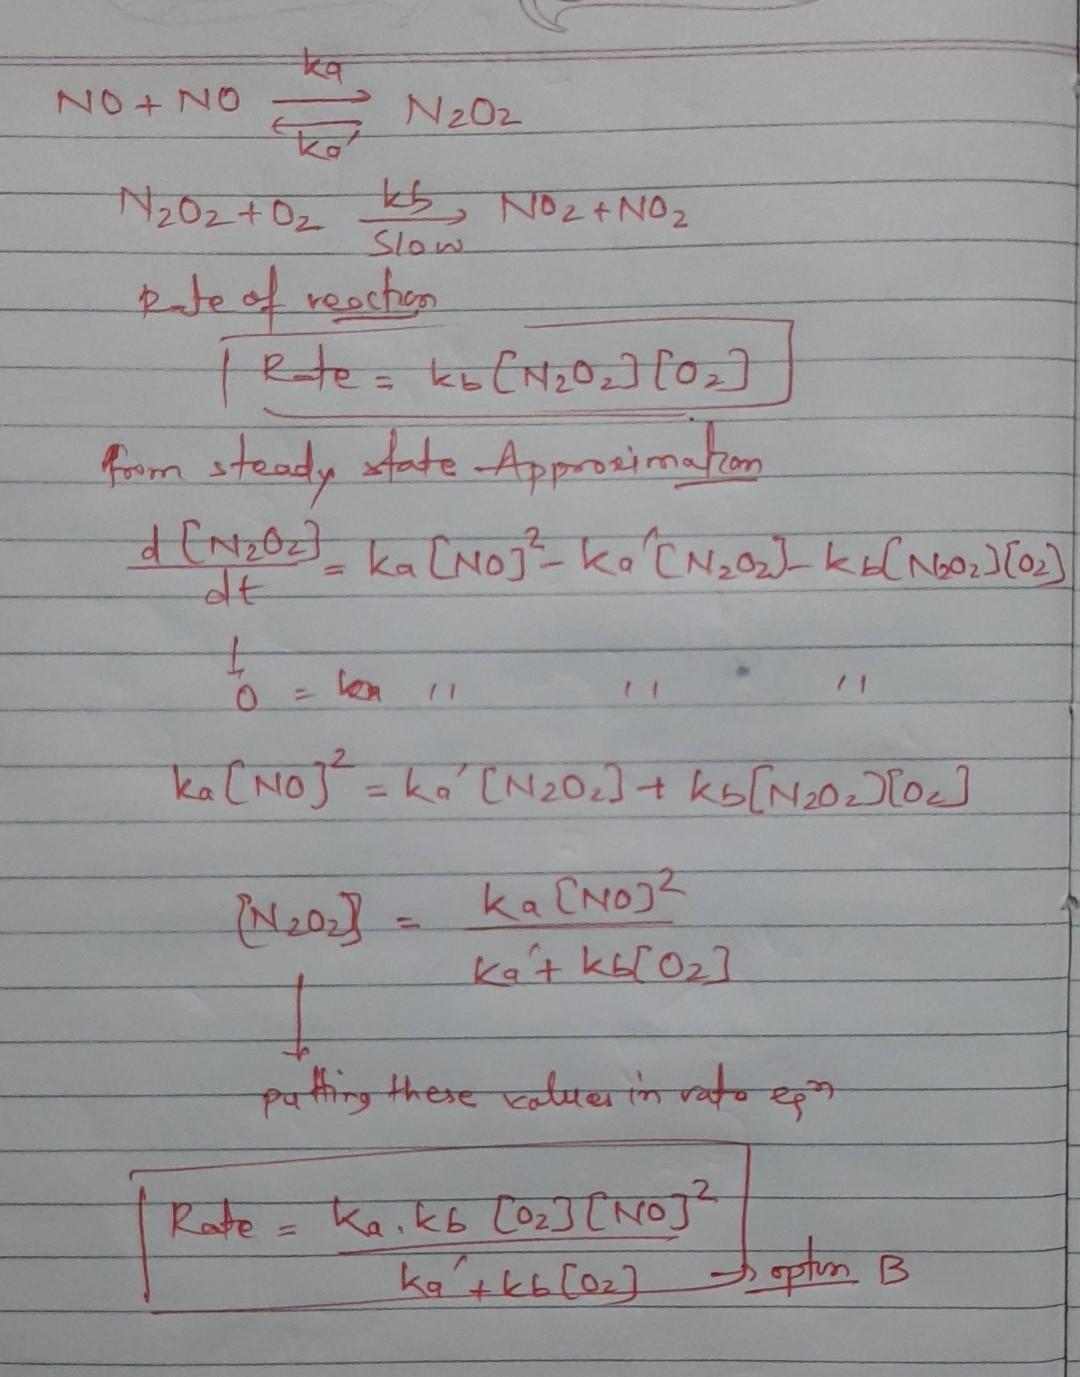 NO + NO ka ⇌ ka' N2O2
N2O2 + O2 kb → Slow NO2 + NO2
Rate of reaction
Rate = kb [N2O2] [O2]
from steady state Approximation
d [N2O2] / dt = ka [NO]² - ka' [N2O2] - kb [N2O2] [O2]
↓
0 = ka " " "
ka [NO]² = ka' [N2O2] + kb [N2O2] [O2]
[N2O2] = ka [NO]² / ka' + kb [O2]
↓
putting these values in rate eqn
Rate = ka . kb [O2] [NO]² / ka' + kb [O2] → option B